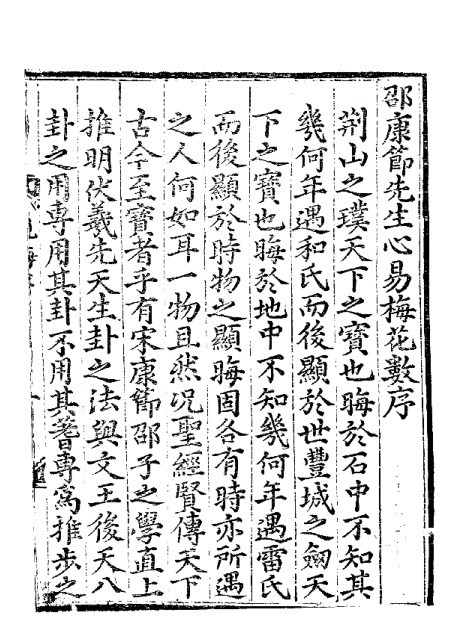 邵康節先生心易梅花數序
荆山之璞天下之寶也晦於石中不知其
幾何年遇和氏而後顯於世豐城之劒天
下之寶也晦於地中不知幾何年遇雷氏
而後顯於時物之顯晦固各有時亦所遇
之人何如耳一物且然况聖經賢傳天下
古今至寶者乎有宋康節邵子之學直上
推明伏羲先天生卦之法與文王後天八
卦之用專用其卦不用其蓍專寫推步之